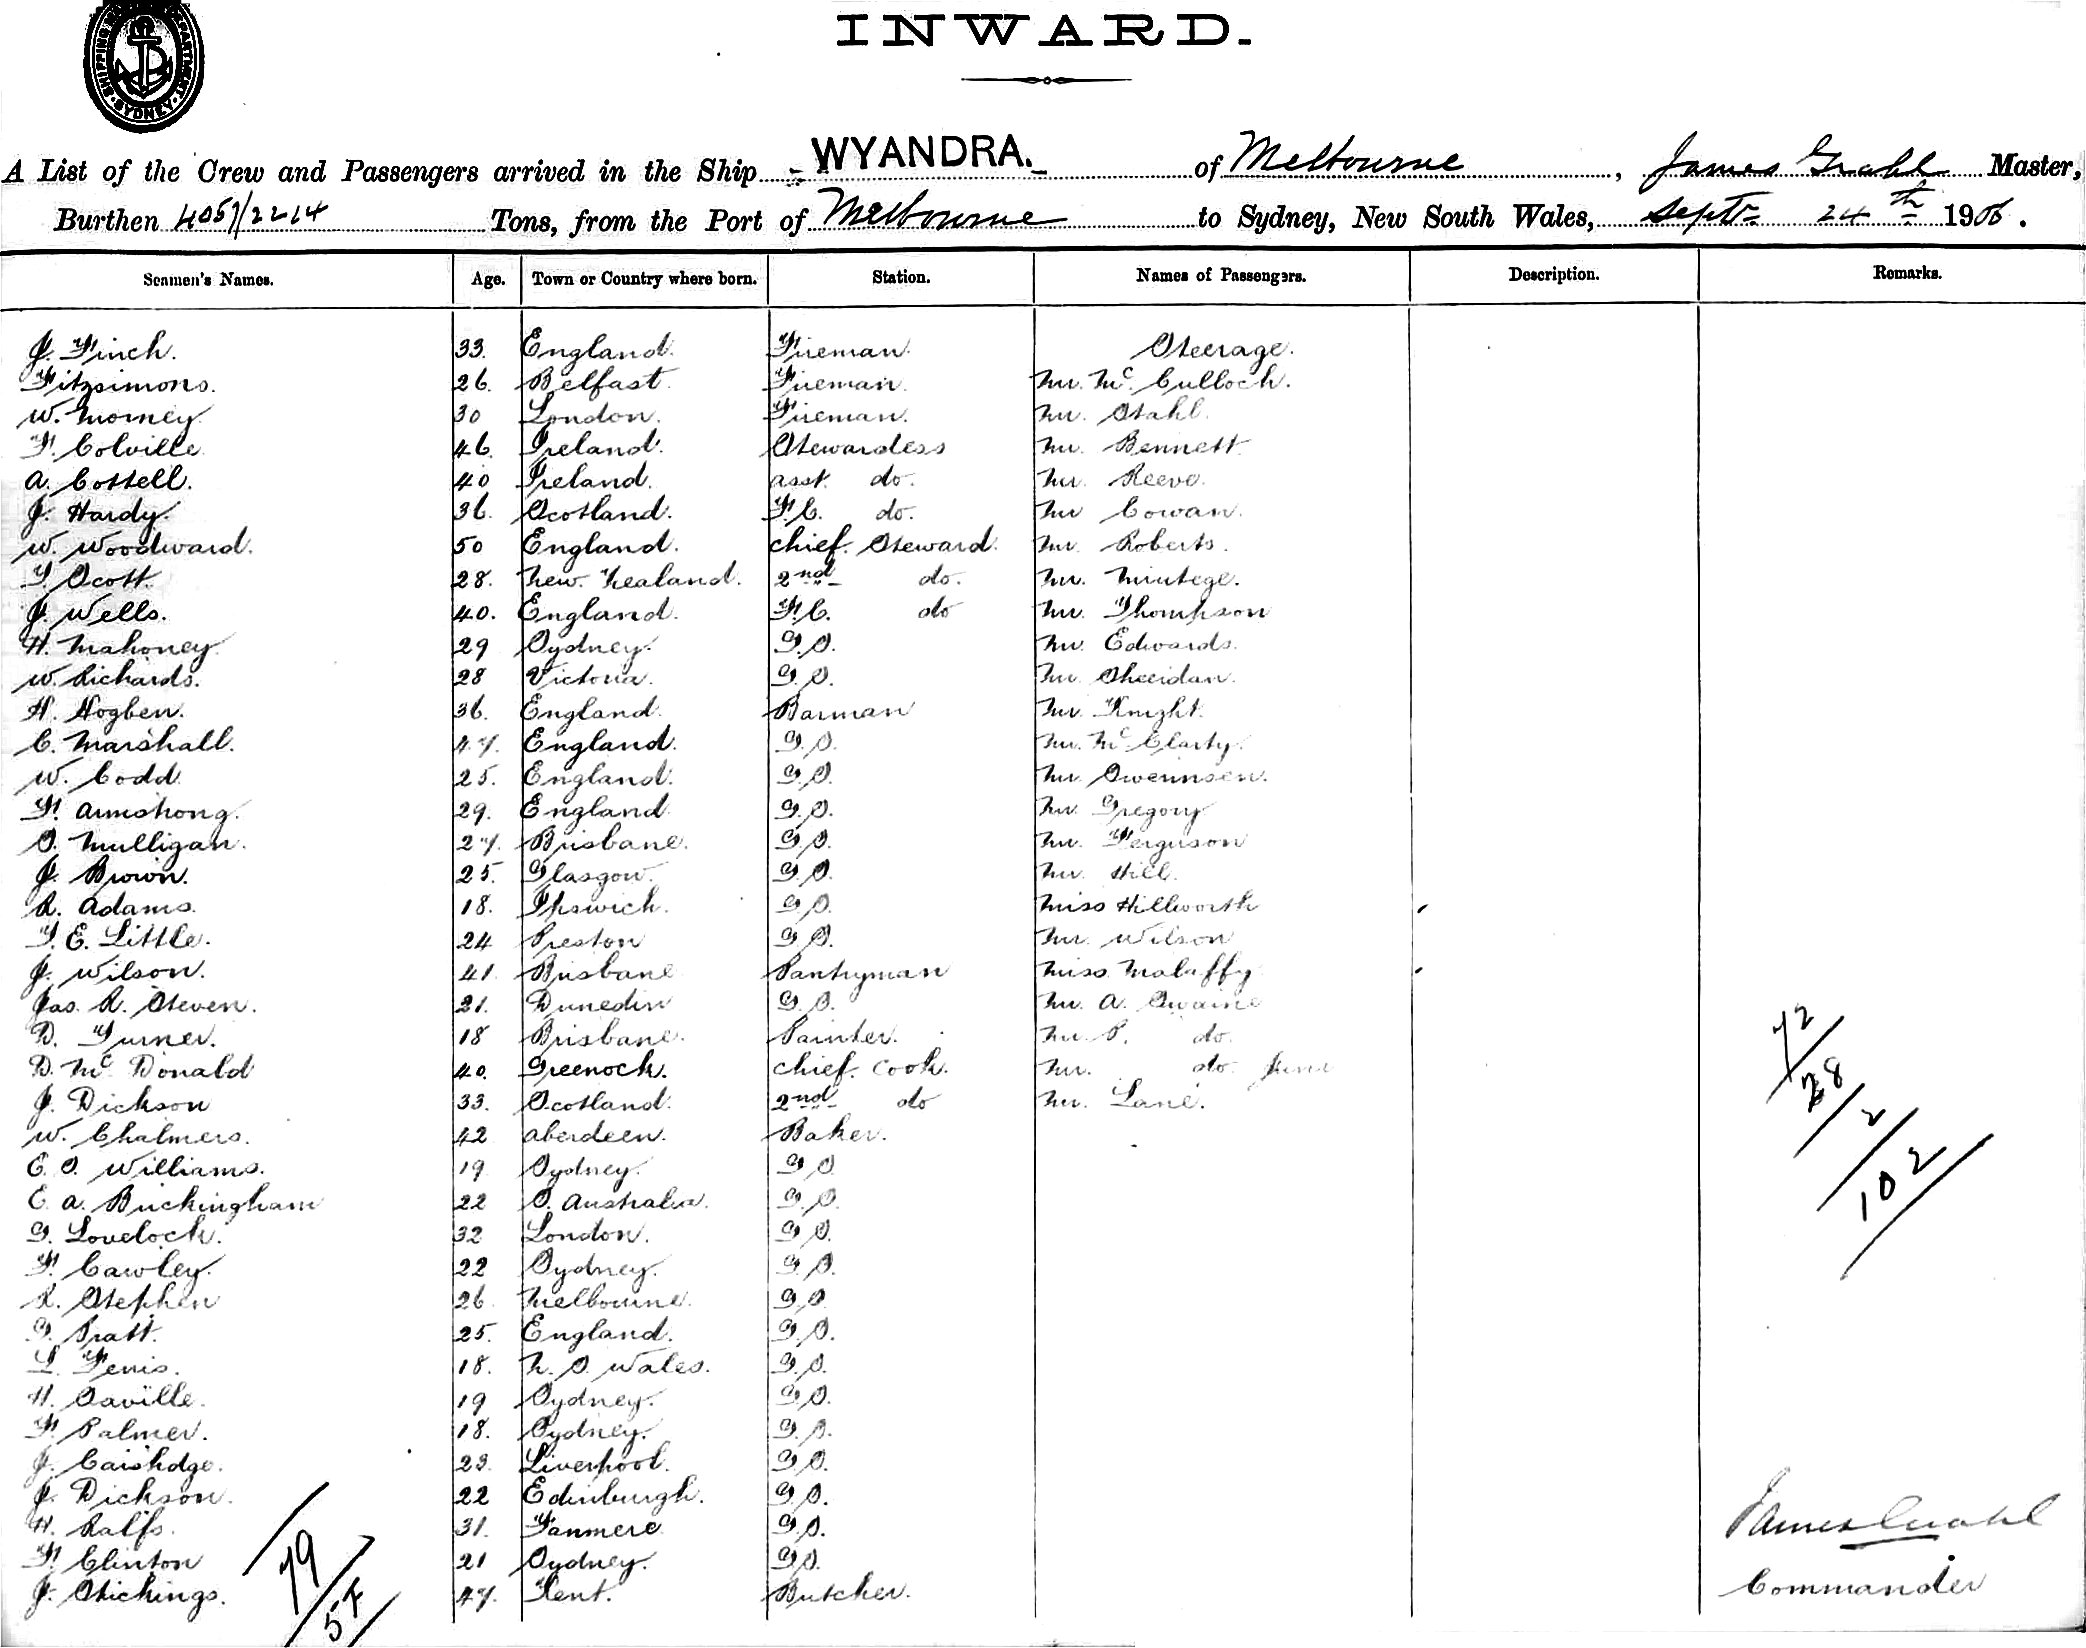 SHIPPING DEPARTMENT SYDNEY
INWARD.
A List of the Crew and Passengers arrived in the Ship WYANDRA. of Melbourne, James Grahl Master,
Burthen 4057/2214 Tons, from the Port of Melbourne to Sydney, New South Wales, Septr 24th 1906.
Seamen's Names. Age. Town or Country where born. Station. Names of Passengers. Description. Remarks.
J. Finch. 33. England. Fireman. Steerage.
Fitzsimons. 26. Belfast. Fireman. Mr. McCulloch.
W. Morney. 30 London. Fireman. Mr. Stahl.
F. Colville. 46. Ireland. Stewardess Mr. Bennett
A. Cottell. 40 Ireland. asst. do. Mr. Reeve.
J. Hardy. 36. Scotland. F.C. do. Mr Cowan.
W. Woodward. 50 England. chief. Steward. Mr. Roberts.
T. Scott. 28. New. Zealand. 2nd do. Mr.
J. Wells. 40. England. F.C. do Mr. Thompson
H. Mahoney. 29 Sydney. G.S. Mr. Edwards.
W. Richards. 28 Victoria. G.S. Mr. Sheridan.
H. Hogben. 36. England. Barman Mr. Knight.
C. Marshall. 47. England. G.S. Mr. McClarty.
W. Codd. 25. England. G.S. Mr.
F. Armstrong. 29. England G.S. Mr. Gregory
S. Mulligan. 27. Brisbane. G.S. Mr. Ferguson
J. Brown. 25. Glasgow. G.S. Mr. Hill.
R. Adams. 18. Ipswich. G.S. Miss Hillworth
T. E. Little. 24 Preston G.S. Mr. Wilson
J. Wilson. 41. Brisbane Pantryman Miss Malaffy
Jas. R. Steven. 21. Dunedin G.S. Mr. A. Swaine
D. Turner. 18 Brisbane. Painter. Mr. P. do.
D. McDonald 40. Greenock. chief. Cook. Mr. do. Junr
J. Dickson 33. Scotland. 2nd do Mr. Lane.
W. Chalmers. 42 Aberdeen. Baker.
E. S. Williams. 19 Sydney. G.S.
E. A. Buckingham 22 S. Australia. G.S.
G. Lovelock. 32 London. G.S.
F. Cawley. 22 Sydney. G.S.
R. Stephen 26. Melbourne. G.S.
G. Pratt. 25. England. G.S.
L. Ferris. 18. N. S. Wales. G.S.
H. Saville. 19 Sydney. G.S.
F. Palmer. 18. Sydney. G.S.
J. 23. Liverpool. G.S.
J. Dickson. 22 Edinburgh. G.S.
H. Ralfs. 31. G.S.
F. Clinton 21 Sydney. G.S.
J. Stickings. 47. Kent. Butcher.
72/
28/
2/
102/
79/
57/
James Grahl
Commander